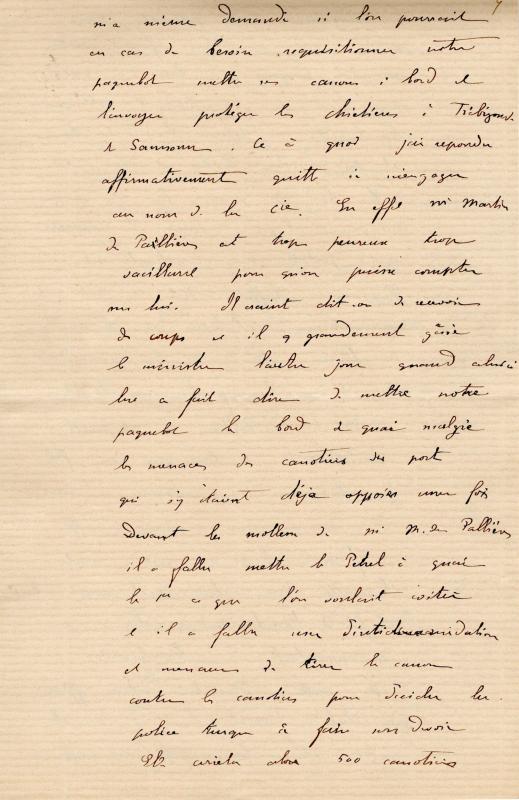 7
m'a même demandé si l'on pouvait
en cas de besoin requisitionner notre
paquebot mettre ses canons à bord et
l'envoyer protéger les chrétiens à Trébizonde
& Samsoun. Ce à quoi j'ai repondu
affirmativement quitte à m'engager
au nom de la Cie. En effet mr Martin
de Pallières est trop peureux trop
vacillant pour qu'on puisse compter
sur lui. Il craint dit-on de recevoir
des coups et il a grandement gêné
le ministre l'autre jour quand celui-ci
lui a fait dire de mettre notre
paquebot le bord à quai malgré
les menaces des canotiers du port
qui s'y étaient déjà opposés une fois
Devant les mollesse de mr M. des Pallières
il a fallu mettre le Petrel à quai
le 1er ce que l'on voulait éviter
et il a fallu une
et menacer de tirer le canon
contre les canotiers pour décider la
police turque à faire son devoir
Elle arrêta alors 500 canotiers